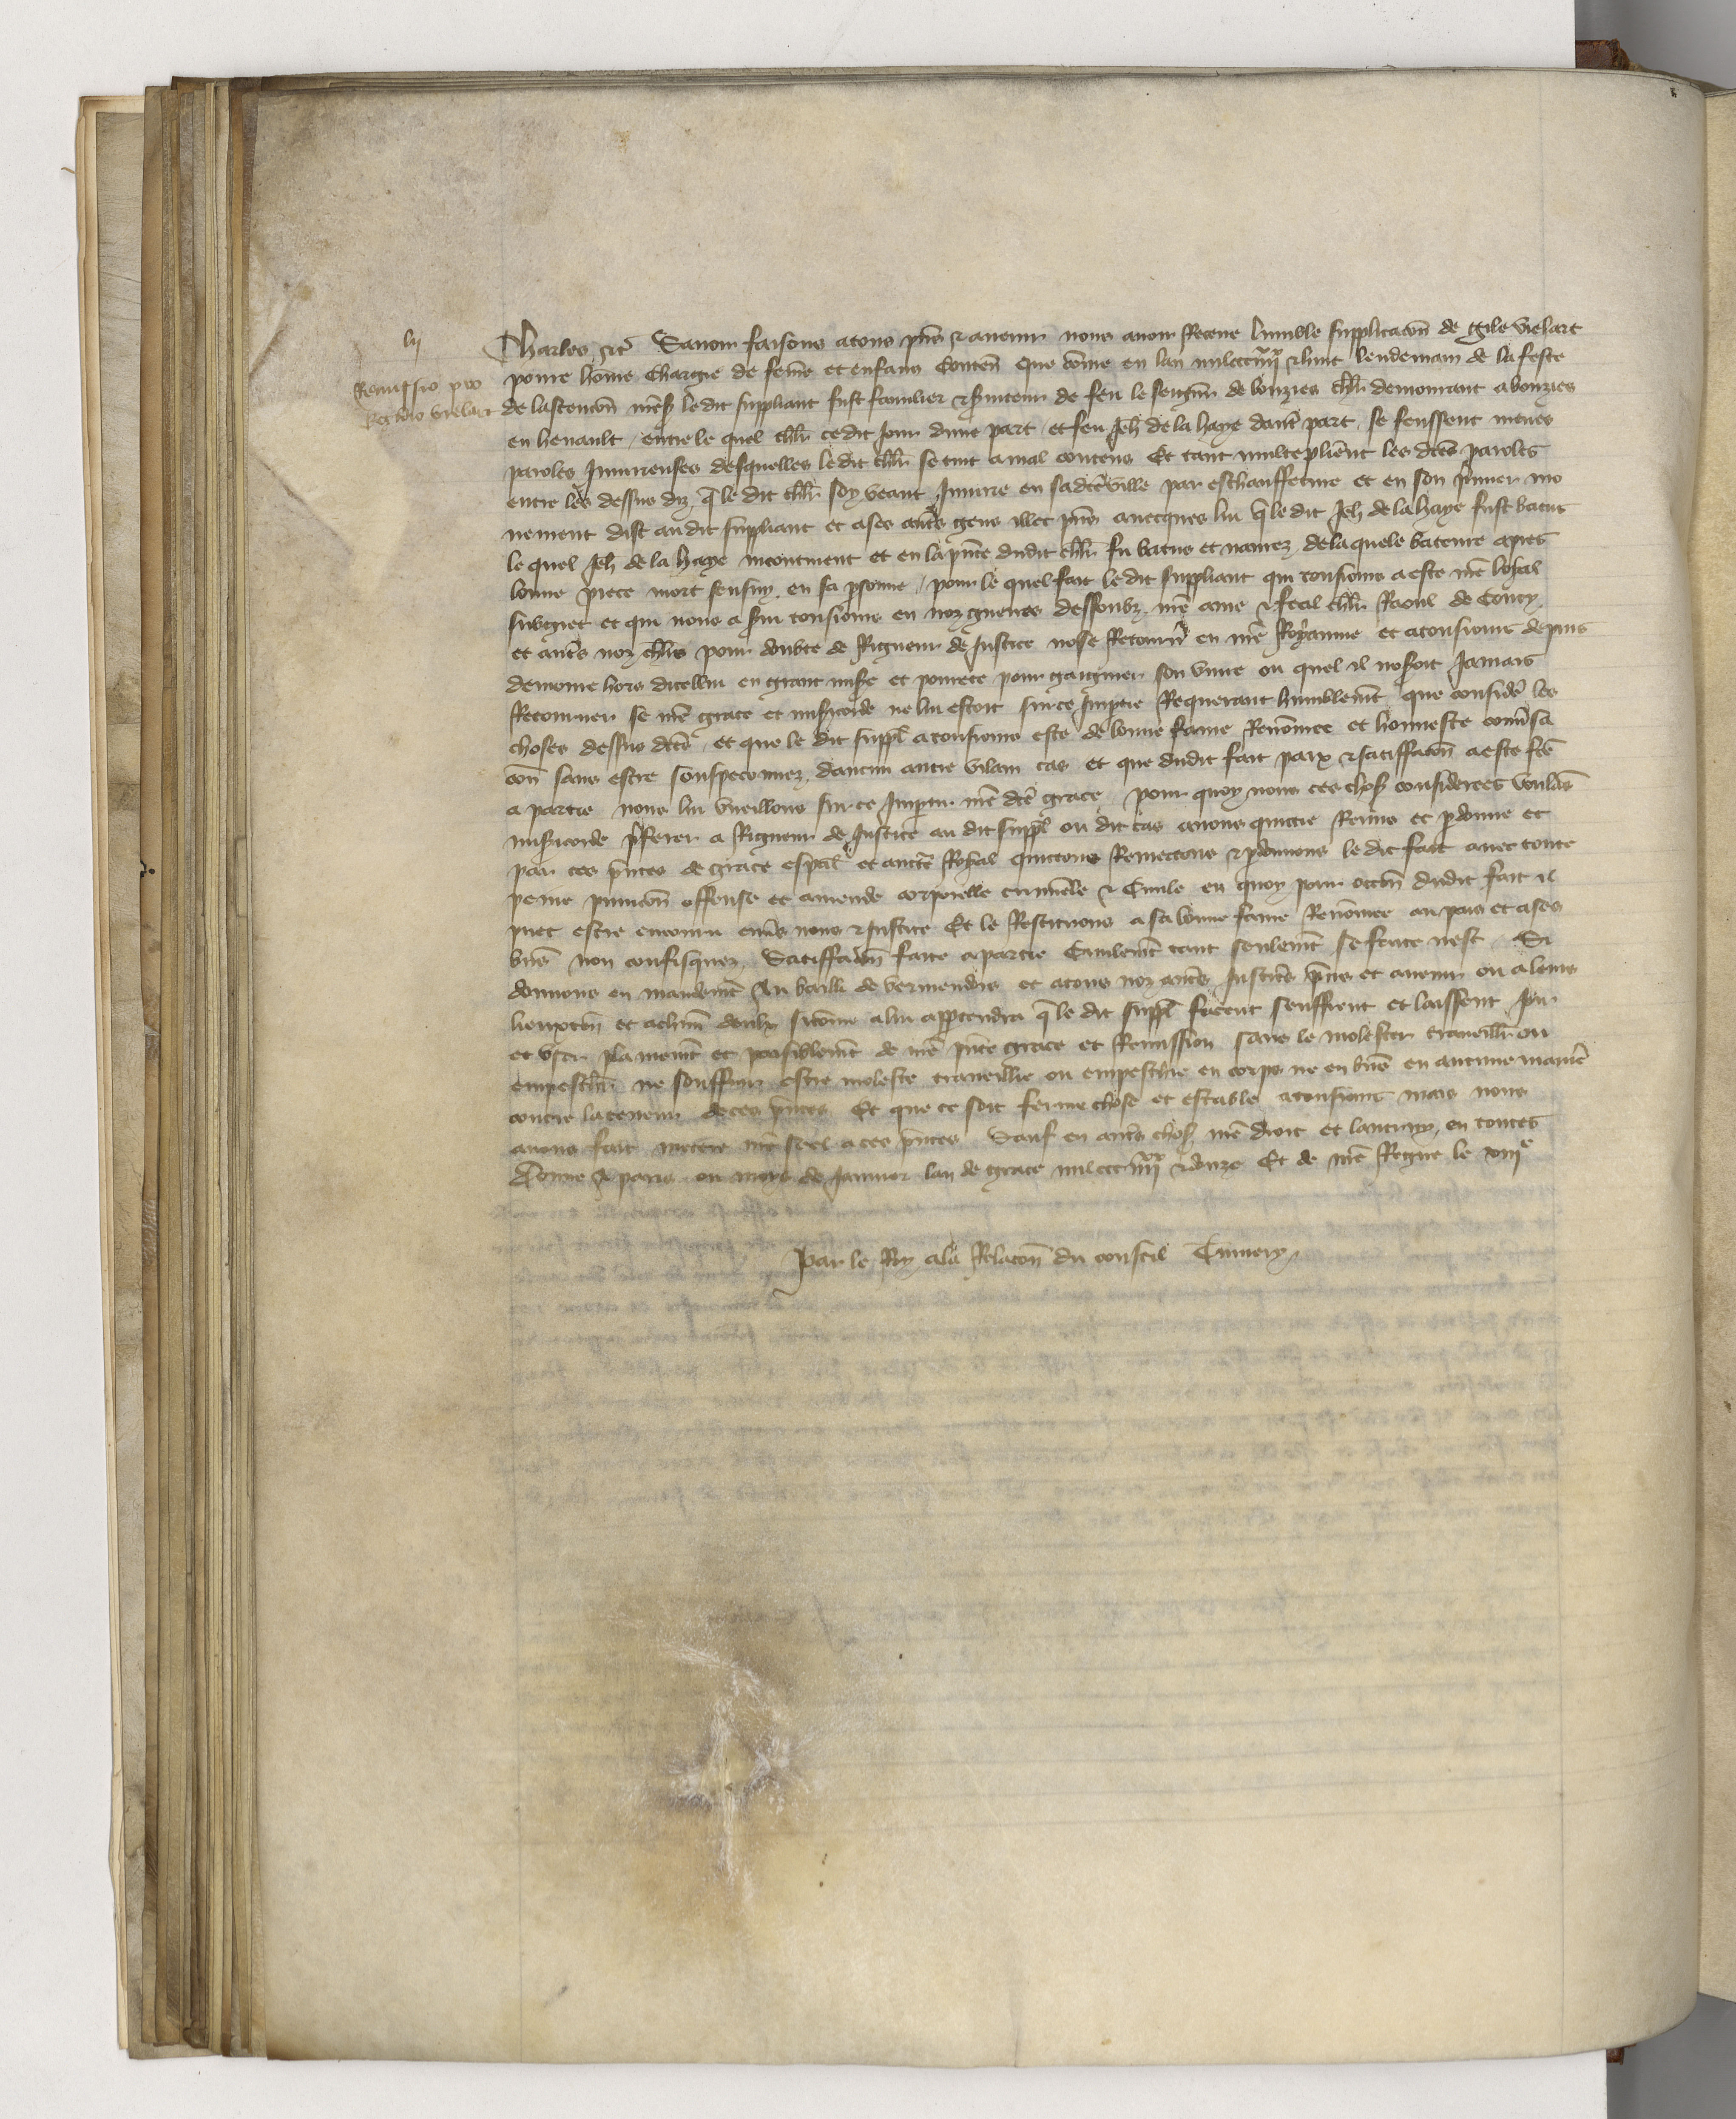 lij
Remissio pro
Egidio Vielart
Charles etc Savoir faisons a tous pñs & avenir nous avoir Receue lumble supplicacõn de Gile Vielart
povre hõme chargie de fẽme et enfans Contenãt que cõme en lan mil CCC IIIIxx & huit lendemain de la feste
de lascencõn ñres le dit suppliant fust familier & s̃viteur de feu le seigñr de bouzies ch̃lr demourant a bouzies
en henault / entre le quel ch̃lr ce dit Jour dune part / et feu Jeh̃ de la haye daut̃ part se feussent meues
paroles Injurieuses desquelles le dit ch̃lr se tint a mal contens Et tant multeplieñt les dc̃es paroles
entre les dessus diz q̃ le dit ch̃lr soy veant Injurie en sa dc̃e ville par eschauffeture et en son p̃mier mo
vement dist au dit suppliant et a ses aut̃s gens illec pñs avecques lui q̃ le dit Jeh̃ de la haye fust batus
le quel Jeh̃ de la haye incontinent et en la pñce dudit ch̃lr fu batus et navrez de la quele bateure apres
bonne piece mort sensuy en sa p̃sonne / pour le quel fait le dit suppliant qui tousiours a este ñre loyal
subgiet et qui nous a s̃vi tousiours en noz guerres dessoubz ñre ame & feal ch̃lr Raoul de Coucy
et aut̃s noz ch̃lrs pour doubte de Rigueur de Justice nose Retourñ en ñre Royaume et a tousiours depuis
demoure hors dicellui en grant mis̃e et povrete pour gaigner son vivre ou quel il noseroit Jamais
Retourner se ñre grace et mis̃icorde ne lui estoit sur ce Impartie Requerant humblemẽt que consider̃ les
choses dessus dc̃es / et que le dit suppl̃ a tousiours este de bonne fame Renõmee et honneste conṽsa
cõn sans estre souspeconnez daucun autre vilain cas et que dudit fait paix & satiffacõn a este fc̃e
a partie nous lui vueillons sur ce Impartir ñre dc̃e grace pour quoy nous ces choses considerees voulãs
mis̃icorde p̃ferer a Rigueur de Justice au dit suppl̃ ou dit cas avons quictie Remis et p̃donne et
par ces pñtes de grace esp̃al et auctc̃e Royal quictons Remectons & p̃donnons le dit fait avec toute
peine punicõn offense et amende corporelle criminele & Civile en quoy pour occõn dudit fait il
puet estre encouru enṽs nous & Justice Et le Restituons a sa bonne fame Renõmee au pais et a ses
biẽs non confisquez Satiffacõn faite a partie Civilemẽt tant seulemẽt se faite nest Si
donnons en mandemẽt Au bailli de vermendois et a tous noz aut̃s Justic̃s pñs et avenir ou a leurs
lieuxteñ et a chũn deulx sicõme a lui app̃tendra q̃ le dit suppl̃ facent seuffrent et laissent Joir
et user plainemẽt et paisiblemẽt de ñre pñte grace et Remission sans le molester traveill̃r ou
empesch̃r ne souffrir estre moleste traveillie ou empeschie en corps ne en biẽs en aucune maniẽ
contre la teneur de ces pñtes Et que ce soit ferme chose et estable a tousiours mais nous
avons fait mectre ñre seel a ces pñtes Sauf en aut̃s chos̃ ñre droit et lautruy en toutes
Donne A paris ou moys de Janvier lan de grace mil CCC IIIIxx & donze Et de ñre Regne le xiiie
Par le Roy a la Relacõn du conseil